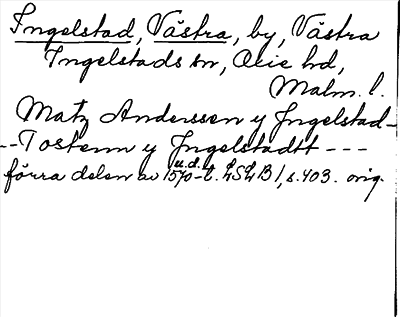 Ingelstad, Västra, by, Västra
Ingelstads sn, Ↄlie hd,
Malm. l.
Matz Anderssen y Jngelstad-
--Tostenn y Jngelstadtt ---
u.d.
förra delen av 1570-t. LSLB 1, s. 403. orig.